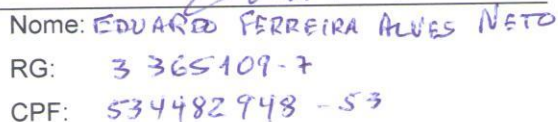 Nome: EDUARDO FERREIRA ALVES NETO
RG: 3 365109-7
CPF: 534482948-53